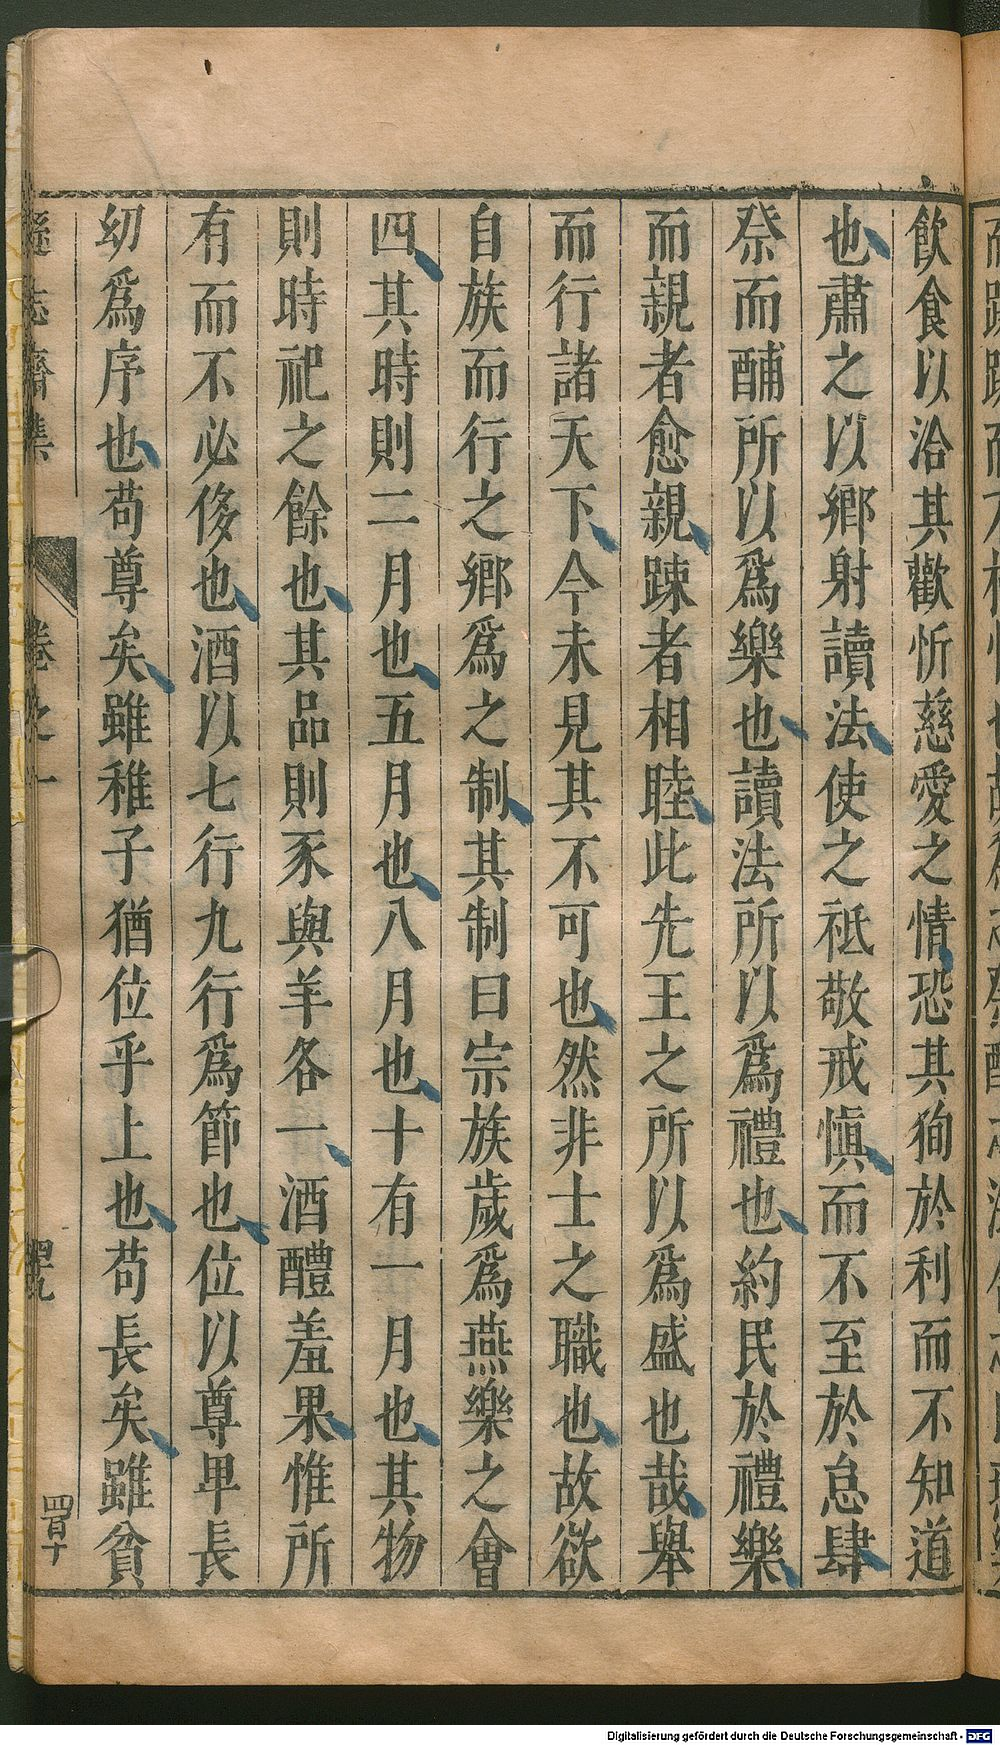 飲食以洽其歡忻慈愛之情恐其狥於利而不知道
也肅之以鄉射讀法使之祗敬戒慎而不至於怠肆
祭而酺所以爲樂也讀法所以爲禮也約民於禮樂
而親者愈親踈者相睦此先王之所以爲盛也哉舉
而行諸天下今未見其不可也然非士之職也故欲
自族而行之鄉爲之制其制曰宗族歲爲燕樂之會
四其時則二月也五月也八月也十有一月也其物
則時祀之餘也其品則豕與羊各一酒醴羞果惟所
有而不必侈也酒以七行九行爲節也位以尊卑長
幼爲序也苟尊矣雖稚子猶位乎上也苟長矣雖貧
遜志齋集 卷之一
Digitalisierung gefördert durch die Deutsche Forschungsgemeinschaft - DFG